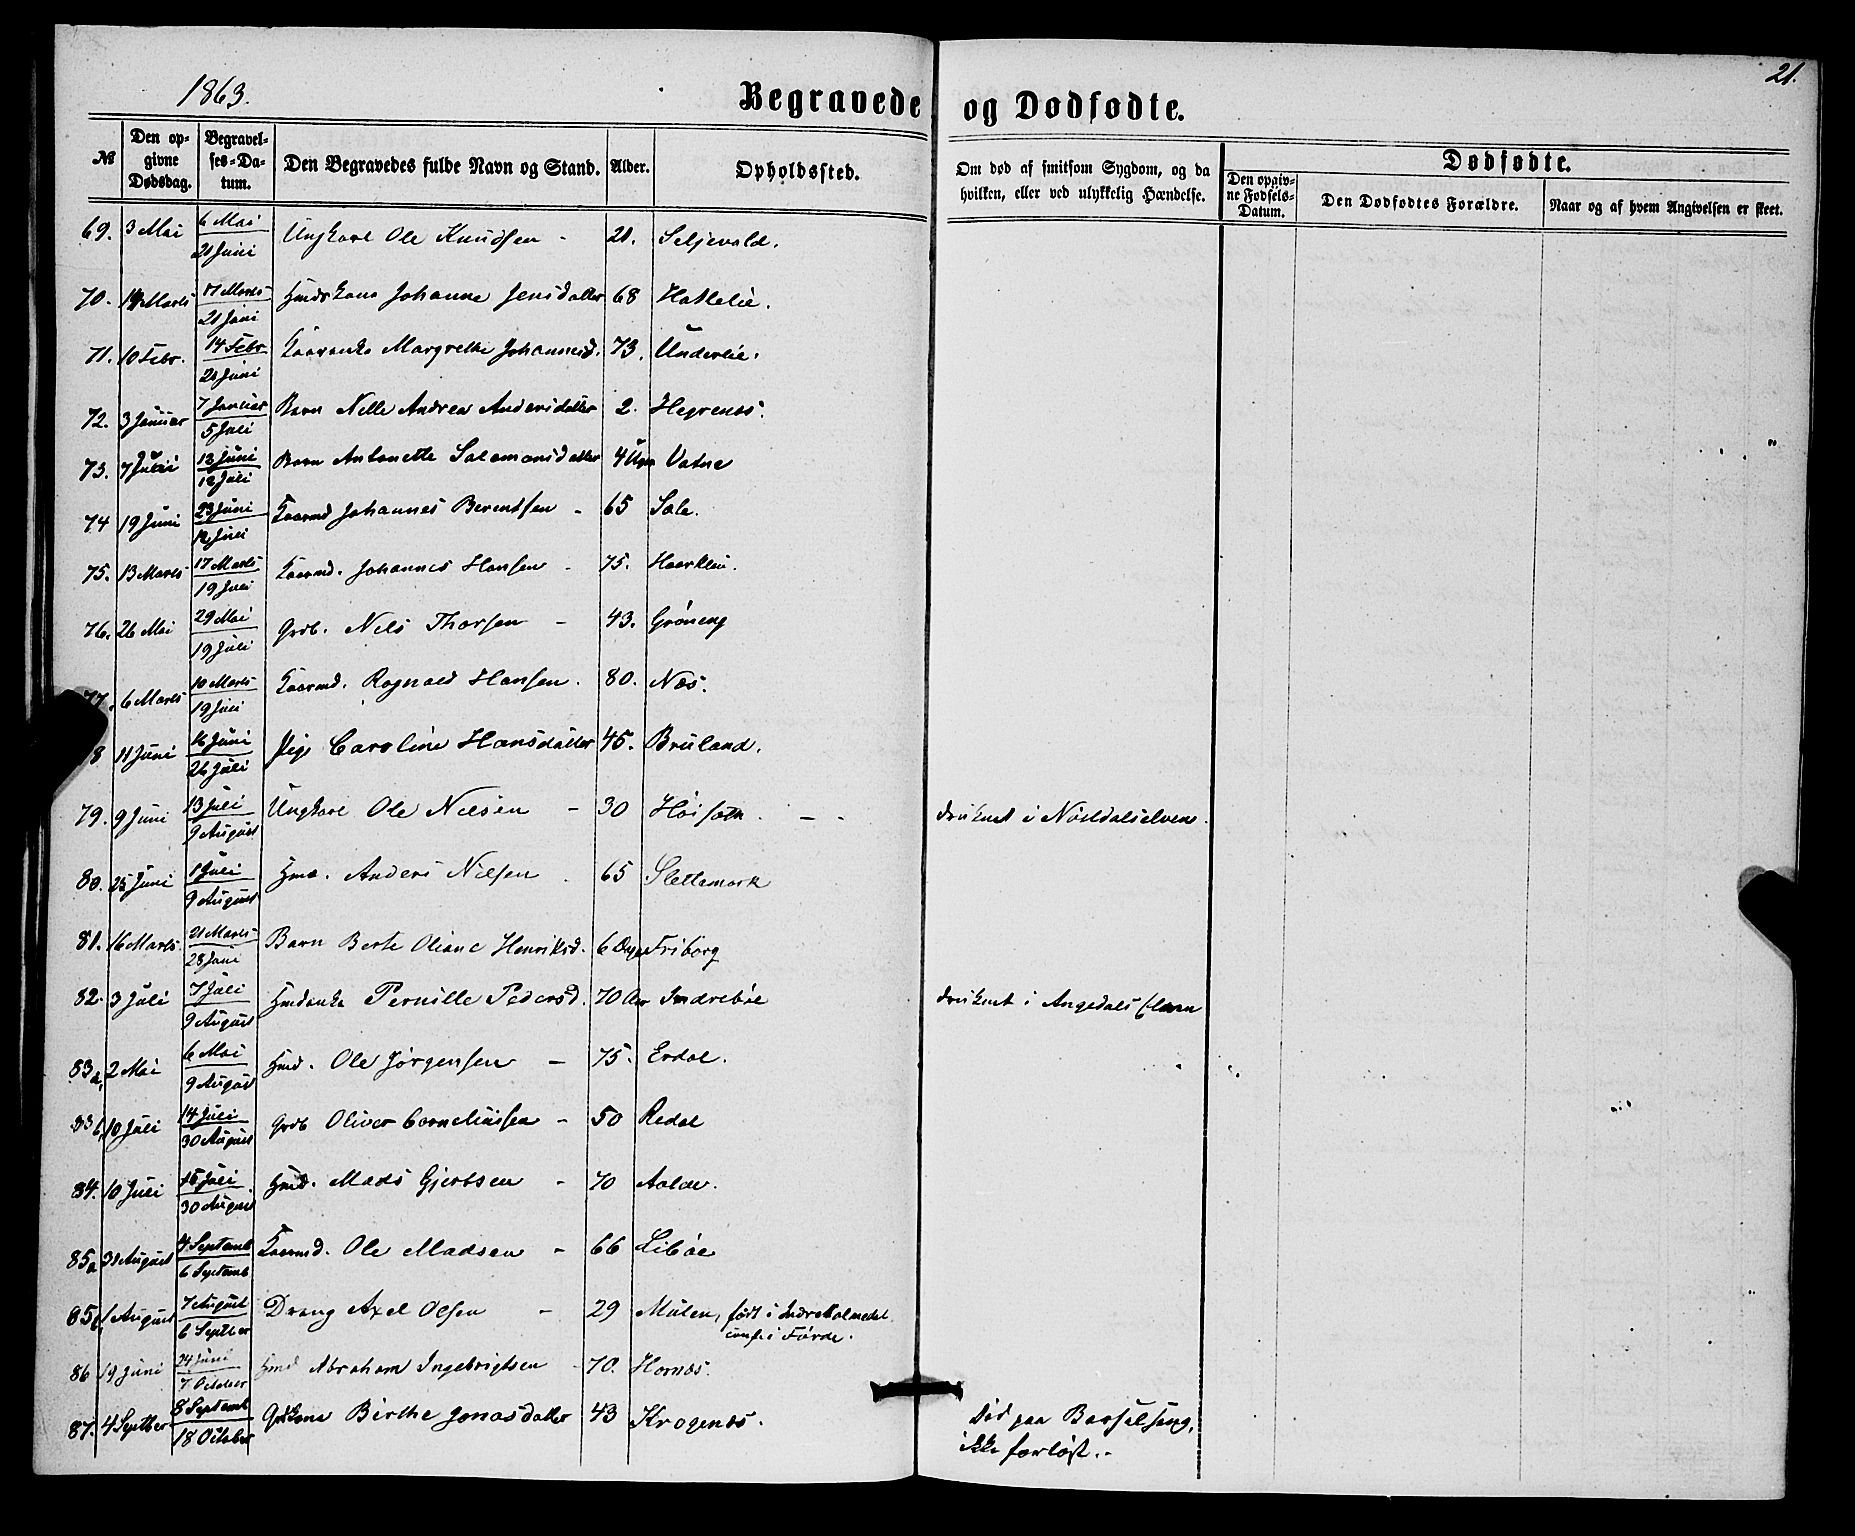 1863.
Begravede og Dødfødte.
21.
№
Den op-
givne
Dødsdag.
Begravel-
ses-Da-
tum.
Den Begravedes fulde Navn og Stand.
Alder.
Opholdssted.
Om død af smitsom Sygdom, og da
hvilken, eller ved ulykkelig Hændelse.
Dødfødte.
Den opgiv-
ne Fødsels-
Datum.
Den Dødfødtes Forældre.
Naar og af hvem Angivelsen er skeet.
69. 3 Mai 6 Mai / 21 Juni Ungkarl Ole Knudsen - 21. Seljevold.
70. 14 Marts 17 Marts / 21 Juni Hmdskone Johanne Jensdatter 68 Hatlelie.
71. 10 Febr. 14 Febr. / 21 Juni Kaarenke Margrethe Johannesd. 73. Underlie.
72. 3 Januar 7 Januar / 5 Juli Barn Nille Andrea Andersdatter 2. Hegrenæs.
73. 7 Juni 12 Juni / 12 Juli Barn Antonette Salamonsdatter 4 Uger Vatne
74 19 Juni 23 Juni / 12 Juli Kaarmd Johannes Berentsen - 65 Sæle.
75. 13 Marts 17 Marts / 19 Juli Kaarmd. Johannes Hansen - 75. Haarklau.
76. 26 Mai 29 Mai / 19 Juli Grdb. Nils Thorsen - 43. Grøneng
77. 6 Marts 10 Marts / 19 Juli Kaarmd. Rognald Hansen. 80. Næs.
8 11 Juni 16 Juni / 26 Juli Pige Caroline Hansdatter 45. Bruland.
79. 9 Juni 13 Juli / 9 August Ungkarl Ole Nilsen - 30 Høisæth. - - druknet i Nøsdalselven.
80. 25 Juni 1 Juli / 9 August Hmd. Anders Nilsen 65 Slettemark
81. 16 Marts 21 Marts / 28 Juni Barn Berte Oliane Henriksd. 6 Dage Friborg
82. 3 Juli 7 Juli / 9 August Hmdenke Pernille Pedersd. 70 Aar Indrebøe druknet i Angedals Elven
83a, 2 Mai 6 Mai / 9 August Hmd. Ole Jørgensen - 75. Erdal.
83b, 10 Juli 14 Juli / 30 August Grdb Oliver Corneliussen - 50 Redal
84. 10 Juli 15 Juli / 30 August Hmd. Mads Gjertsen - 70 Aalde.
85a 31 August 4 Septemb / 6 Septemb Kaarmd. Ole Madsen - 66 Libøe
85b, 1 August 7 August / 6 Septber Dreng Axel Olsen - 29 Mulen, født i Indre Holmedal
conf. i Førde.
86 19 Juni 24 Juni / 7 October Hmd Abraham Ingebrigtsen - 70. Hornæs.
87. 4 Septber 8 Septemb / 18 October Grdkone Birthe Jonasdatter 43 Krogenæs. Død paa Barselseng,
ikke forløst. -